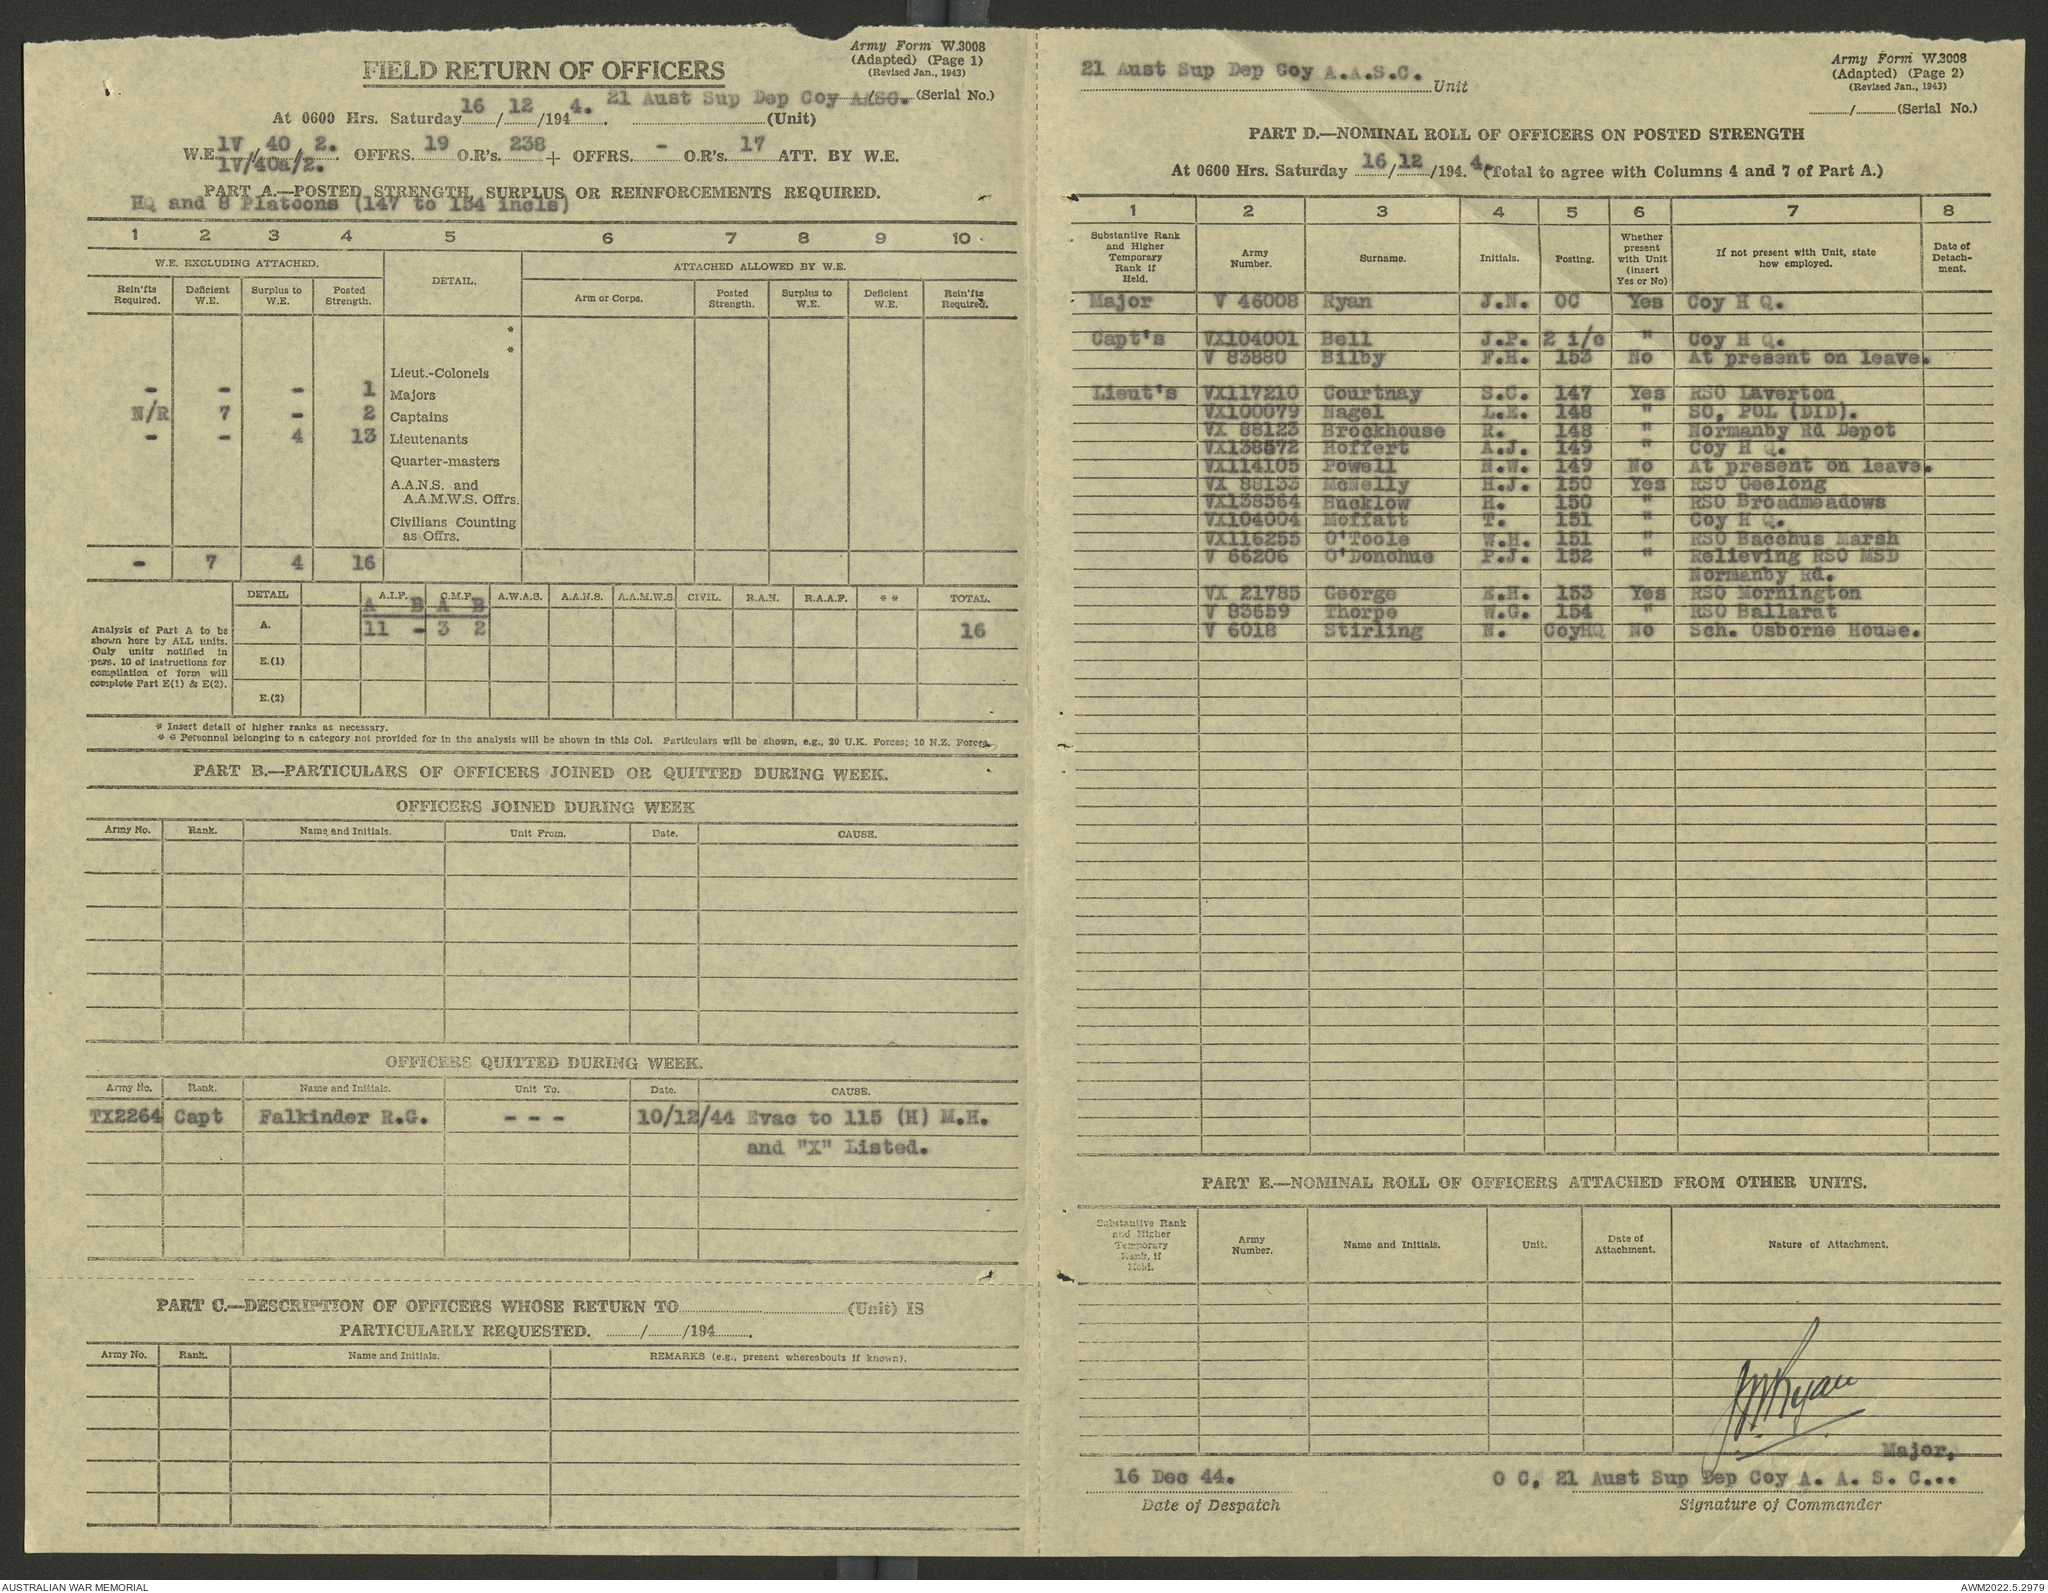 Army Form W.3008
(Adapted) (Page 1)
(Revised Jan., 1943)
FIELD RETURN OF OFFICERS
....../...... (Serial No.)
At 0600 Hrs. Saturday 16/12/1944. 21 Aust Sup Dep Coy AASC. (Unit)
W.E. 1V/40/2. OFFRS. 19 O.R's. 238 + OFFRS. - O.R's. 17 ATT. BY W.E.
1V/40a/2.
PART A.—POSTED STRENGTH, SURPLUS OR REINFORCEMENTS REQUIRED.
HQ and 8 Platoons (147 to 154 incls)
1 2 3 4 5 6 7 8 9 10
W.E. EXCLUDING ATTACHED. DETAIL. ATTACHED ALLOWED BY W.E.
Rein'fts Required. Deficient W.E. Surplus to W.E. Posted Strength. Arm or Corps. Posted Strength. Surplus to W.E. Deficient W.E. Rein'fts Required.
*
*
Lieut.-Colonels
- - - 1 Majors
N/R 7 - 2 Captains
- - 4 13 Lieutenants
Quarter-masters
A.A.N.S. and
A.A.M.W.S. Offrs.
Civilians Counting
as Offrs.
- 7 4 16
DETAIL A.I.F. C.M.F. A.W.A.S. A.A.N.S. A.A.M.W.S. CIVIL. R.A.N. R.A.A.F. * * TOTAL.
A B A B
A. 11 - 3 2 16
E.(1)
E.(2)
Analysis of Part A to be
shown here by ALL units.
Only units notified in
para. 10 of instructions for
compilation of form will
complete Part E(1) & E(2).
* Insert detail of higher ranks as necessary.
* * Personnel belonging to a category not provided for in the analysis will be shown in this Col. Particulars will be shown, e.g., 20 U.K. Forces; 10 N.Z. Forces.
PART B.—PARTICULARS OF OFFICERS JOINED OR QUITTED DURING WEEK.
OFFICERS JOINED DURING WEEK
Army No. Rank. Name and Initials. Unit From. Date. CAUSE.
OFFICERS QUITTED DURING WEEK.
Army No. Rank. Name and Initials. Unit To. Date. CAUSE.
TX2264 Capt Falkinder R.G. - - - 10/12/44 Evac to 115 (H) M.H.
and "X" Listed.
PART C.—DESCRIPTION OF OFFICERS WHOSE RETURN TO............(Unit) IS
PARTICULARLY REQUESTED. ......../......../194........
Army No. Rank. Name and Initials. REMARKS (e.g., present whereabouts if known).
Army Form W.3008
(Adapted) (Page 2)
(Revised Jan., 1943)
21 Aust Sup Dep Coy A.A.S.C. Unit
....../...... (Serial No.)
PART D.—NOMINAL ROLL OF OFFICERS ON POSTED STRENGTH
At 0600 Hrs. Saturday 16/12/1944. (Total to agree with Columns 4 and 7 of Part A.)
1 2 3 4 5 6 7 8
Substantive Rank and Higher Temporary Rank if Held. Army Number. Surname. Initials. Posting. Whether present with Unit (insert Yes or No) If not present with Unit, state how employed. Date of Detachment.
Major V 46008 Ryan J.N. OC Yes Coy H Q.
Capt's VX104001 Bell J.P. 2 i/c " Coy H Q.
V 83880 Bilby F.H. 153 No At present on leave.
Lieut's VX117210 Courtnay S.C. 147 Yes RSO Laverton
VX100079 Nagel L.E. 148 " SO, POL (DID).
VX 88123 Brockhouse R. 148 " Normanby Rd Depot
VX138572 Hoffert A.J. 149 " Coy H Q.
VX114105 Powell N.W. 149 No At present on leave.
VX 88133 McNelly H.J. 150 Yes RSO Geelong
VX138564 Bucklow H. 150 " RSO Broadmeadows
VX104004 Moffatt T. 151 " Coy H Q.
VX116255 O'Toole W.H. 151 " RSO Bacchus Marsh
V 66206 O'Donohue P.J. 152 " Relieving RSO MSD
Normanby Rd.
VX 21785 George E.H. 153 Yes RSO Mornington
V 83659 Thorpe W.G. 154 " RSO Ballarat
V 6018 Stirling N. CoyHQ No Sch. Osborne House.
PART E.—NOMINAL ROLL OF OFFICERS ATTACHED FROM OTHER UNITS.
Substantive Rank and Higher Temporary Rank, if Held. Army Number. Name and Initials. Unit. Date of Attachment. Nature of Attachment.
JNRyan
Major,
16 Dec 44. O C, 21 Aust Sup Dep Coy A. A. S. C...
Date of Despatch Signature of Commander
AUSTRALIAN WAR MEMORIAL AWM2022.5.2979